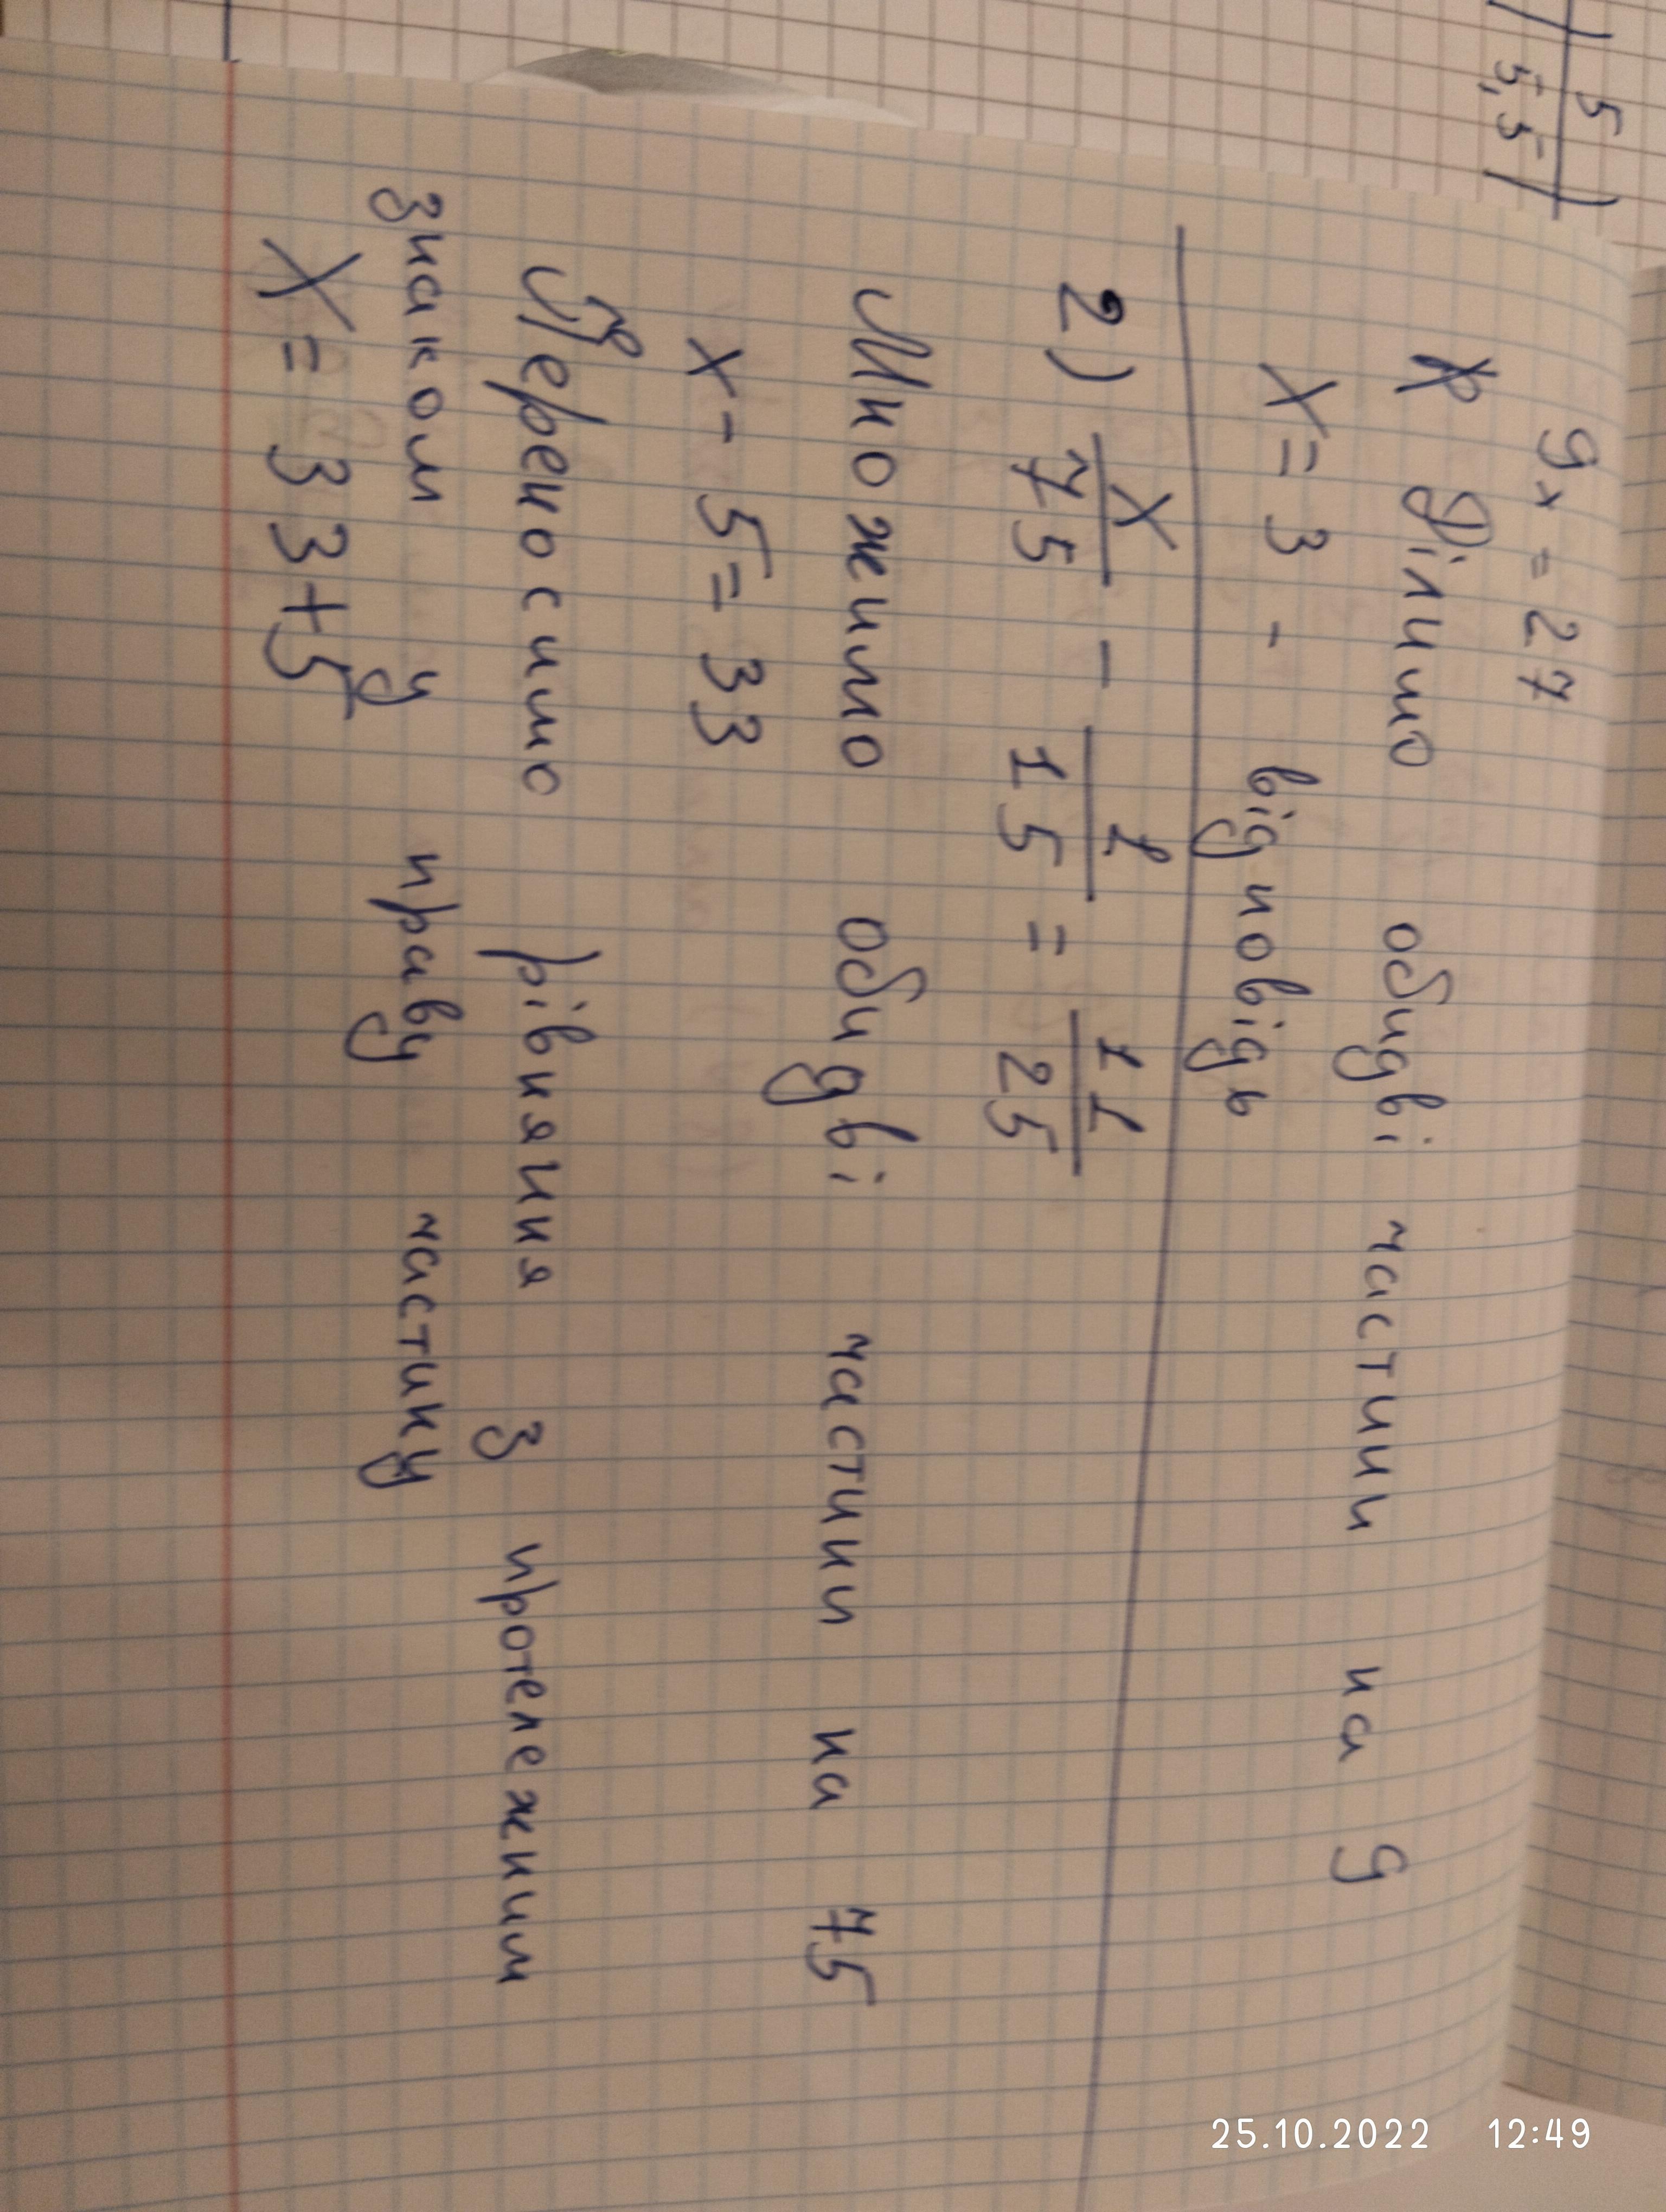 5
5,5
9x = 27
Ділимо обидві частини на 9
X = 3 - відповідь
2) X/75 - 1/15 = 11/25
Множимо обидві частини на 75
x - 5 = 33
Переносимо рівняння з протележним
знаком у праву частину
X = 33+5
25.10.2022 12:49